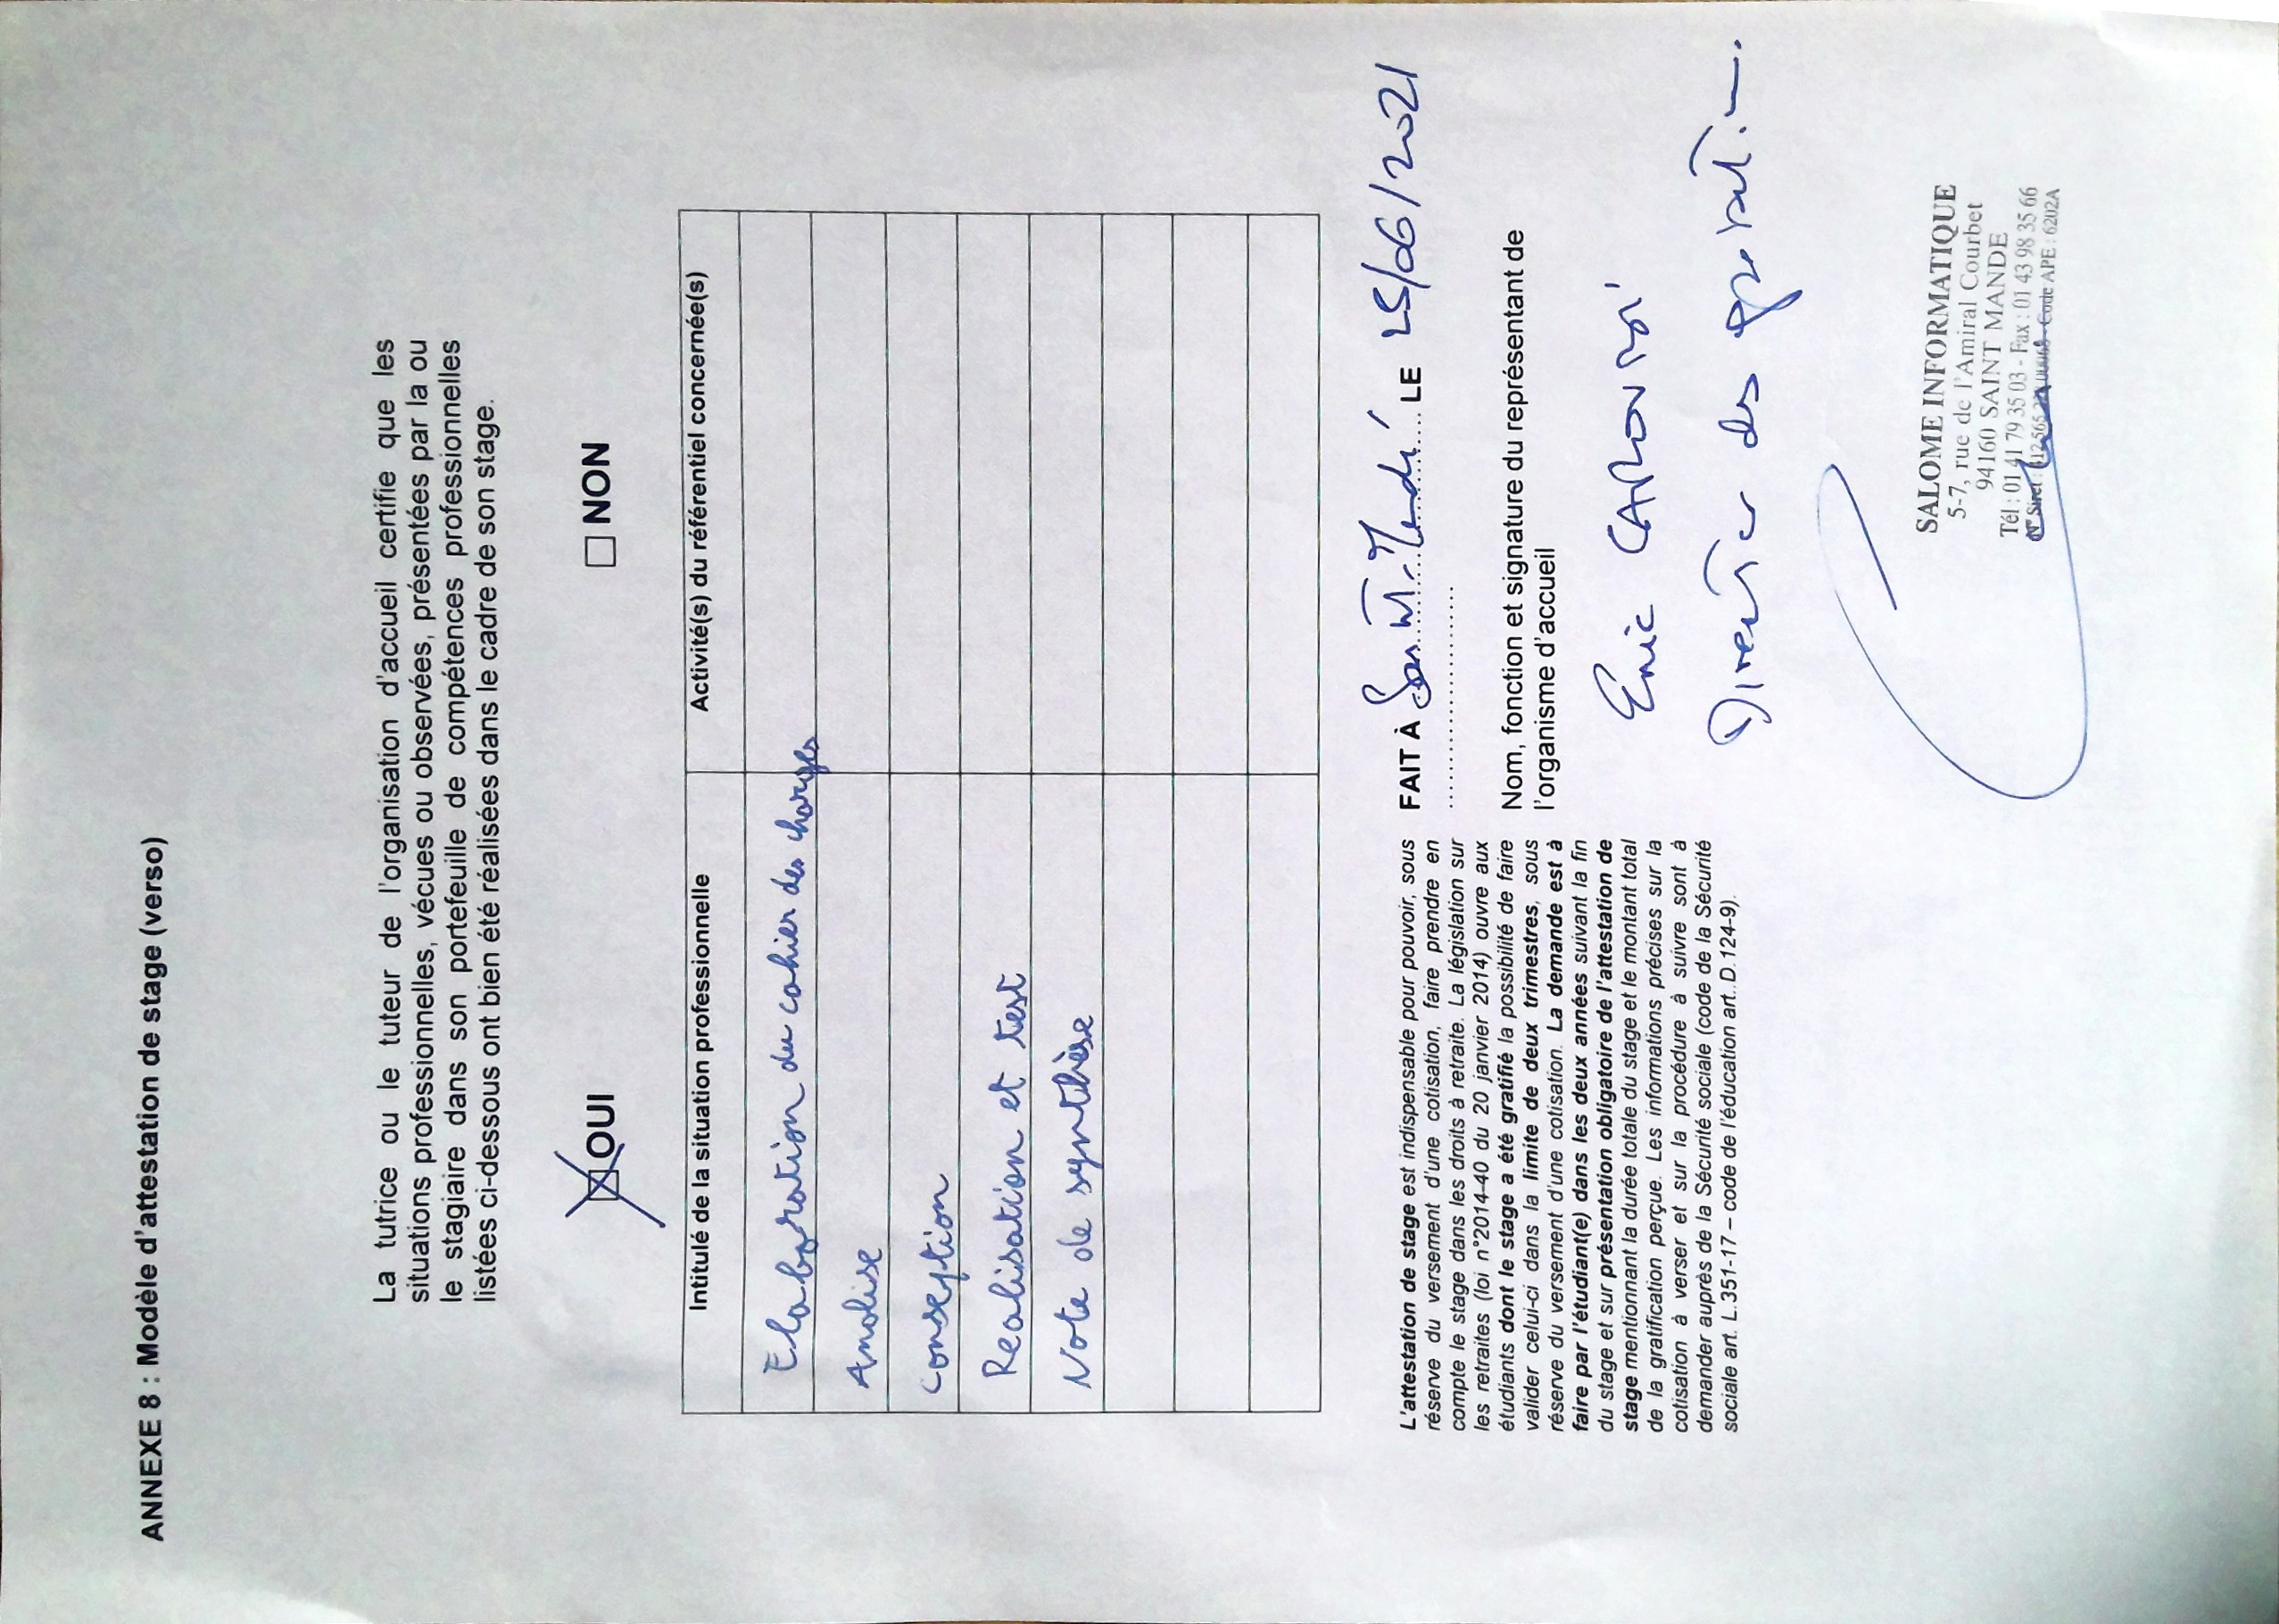 ANNEXE 8 : Modèle d'attestation de stage (verso)
La tutrice ou le tuteur de l'organisation d'accueil certifie que les
situations professionnelles, vécues ou observées, présentées par la ou
le stagiaire dans son portefeuille de compétences professionnelles
listées ci-dessous ont bien été réalisées dans le cadre de son stage.
OUI
NON
Intitulé de la situation professionnelle
Activité(s) du référentiel concernée(s)
Elaboration du cahier des charges
Analise
Conseption
Realisation et test
Note de synthèse
L'attestation de stage est indispensable pour pouvoir, sous
réserve du versement d'une cotisation, faire prendre en
compte le stage dans les droits à retraite. La législation sur
les retraites (loi n°2014-40 du 20 janvier 2014) ouvre aux
étudiants dont le stage a été gratifié la possibilité de faire
valider celui-ci dans la limite de deux trimestres, sous
réserve du versement d'une cotisation. La demande est à
faire par l'étudiant(e) dans les deux années suivant la fin
du stage et sur présentation obligatoire de l'attestation de
stage mentionnant la durée totale du stage et le montant total
de la gratification perçue. Les informations précises sur la
cotisation à verser et sur la procédure à suivre sont à
demander auprès de la Sécurité sociale (code de la Sécurité
sociale art. L.351-17 – code de l'éducation art. D.124-9).
FAIT À Saint-Mandé LE 25/06/2021
Nom, fonction et signature du représentant de
l'organisme d'accueil
Eric
Directeur des
SALOME INFORMATIQUE
5-7, rue de l'Amiral Courbet
94160 SAINT MANDE
Tél : 01 41 79 35 03 - Fax : 01 43 98 35 66
N° Siret : 565 - Code APE : 6202A